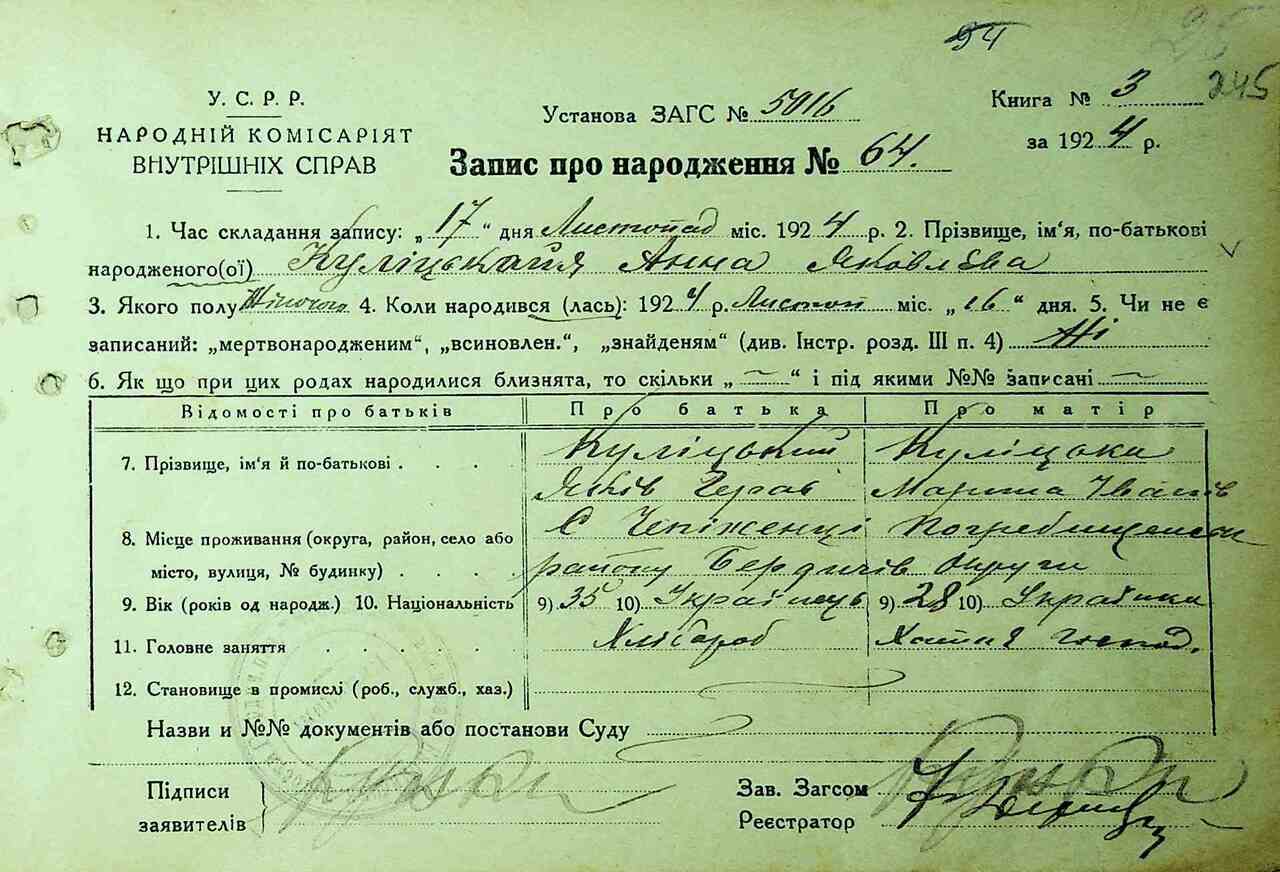 94
245
У. С. Р. Р.
НАРОДНІЙ КОМІСАРІЯТ
ВНУТРІШНІХ СПРАВ
Установа ЗАГС № 5016
Книга № 3
за 1924 р.
Запис про народження № 64.
1. Час складання запису: „17“ дня Листопад міс. 1924 р. 2. Прізвище, ім'я, по-батькові
народженого(ої) Куліцькайя Анна Яковлева
3. Якого полу Жіночого 4. Коли народився (лась): 1924 р. Листоп міс. „16“ дня. 5. Чи не є
записаний: „мертвонародженим“, „всиновлен.“, „знайденям“ (див. Інстр. розд. III п. 4) Ні
6. Як що при цих родах народилися близнята, то скільки „ — “ і під якими №№ записані —
Відомості про батьків Про батька Про матір
7. Прізвище, ім'я й по-батькові . . . Куліцький Куліцька
Яків Марина Іванів
8. Місце проживання (округа, район, село або С Чепіженці Погребищенськ
місто, вулиця, № будинку) . . . . району Бердичів Округи
9. Вік (років од народж.) 10. Національність 9) 35 10) Українець 9) 28 10) Українка
11. Головне заняття . . . . . Хлібороб Хатня господ.
12. Становище в промислі (роб., служб., хаз.)
Назви и №№ документів або постанови Суду
Підписи
заявителів
Зав. Загсом
Реєстратор